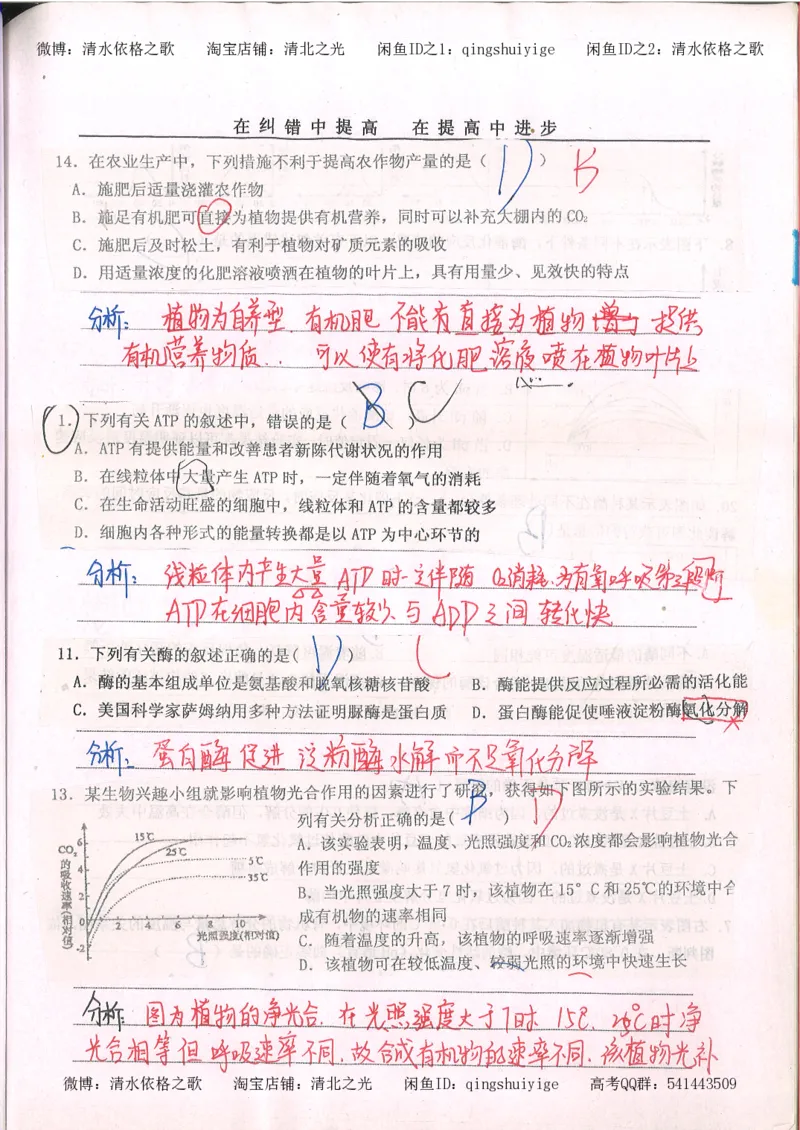 微博：清水依格之歌 淘宝店铺：清北之光 闲鱼ID之1：qingshuiyige 闲鱼ID之2：清水依格之歌
在纠错中提高 在提高中进步
14．在农业生产中，下列措施不利于提高农作物产量的是（ D ） B
A．施肥后适量浇灌农作物
B．施足有机肥可直接为植物提供有机营养，同时可以补充大棚内的CO₂
C．施肥后及时松土，有利于植物对矿质元素的吸收
D．用适量浓度的化肥溶液喷洒在植物的叶片上，具有用量少、见效快的特点
分析：植物为自养型．有机肥不能有直接为植物 提供
有机营养物质．可以使有将化肥溶液喷在植物叶片上
1．下列有关ATP的叙述中，错误的是（ B ） C
A．ATP有提供能量和改善患者新陈代谢状况的作用
B．在线粒体中大量产生ATP时，一定伴随着氧气的消耗
C．在生命活动旺盛的细胞中，线粒体和ATP的含量都较多
D．细胞内各种形式的能量转换都是以ATP为中心环节的
分析：线粒体内产生大量ATP时一定伴随O₂消耗．为有氧呼吸第三阶段
ATP在细胞内含量较少与ADP之间转化快
11．下列有关酶的叙述正确的是( D ) C
A．酶的基本组成单位是氨基酸和脱氧核糖核苷酸 B．酶能提供反应过程所必需的活化能
C．美国科学家萨姆纳用多种方法证明脲酶是蛋白质 D．蛋白酶能促使唾液淀粉酶氧化分解
分析：蛋白酶促进淀粉酶水解而不是氧化分解
13．某生物兴趣小组就影响植物光合作用的因素进行了研究，获得如下图所示的实验结果。下
列有关分析正确的是( B ) D
A．该实验表明，温度、光照强度和CO₂浓度都会影响植物光合
作用的强度
B．当光照强度大于7时，该植物在15°C和25℃的环境中合
成有机物的速率相同
C．随着温度的升高，该植物的呼吸速率逐渐增强
D．该植物可在较低温度、较弱光照的环境中快速生长
CO₂的吸收速率(相对值)
6
4
2
0
-2
15℃
25℃
5℃
35℃
2 4 6 8 10
光照强度(相对值)
分析：图为植物的净光合．在光照强度大于7时．15℃、25℃时净
光合相等但呼吸速率不同．故合成有机物的速率不同．该植物光补
微博：清水依格之歌 淘宝店铺：清北之光 闲鱼ID：qingshuiyige 高考QQ群：541443509